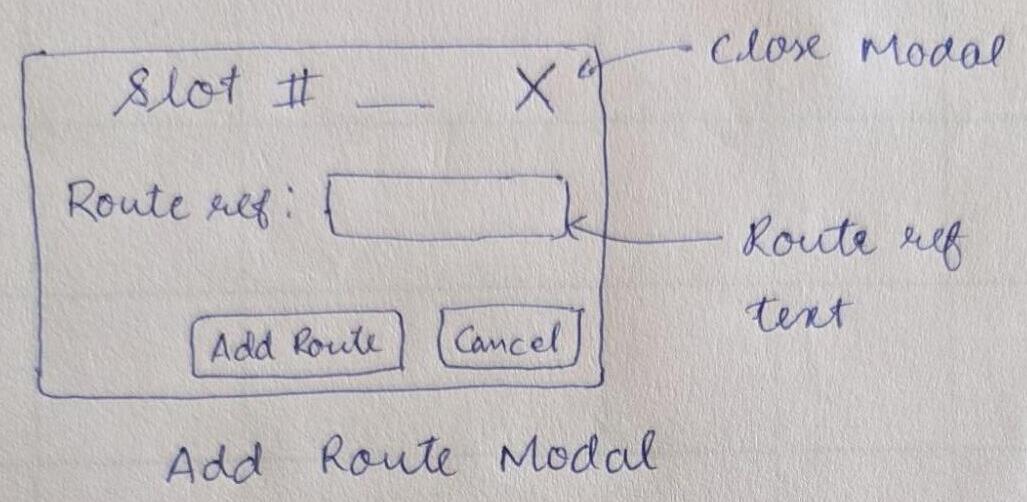 Slot # __ X
Close Modal
Route ref:
Route ref
text
Add Route
Cancel
Add Route Modal